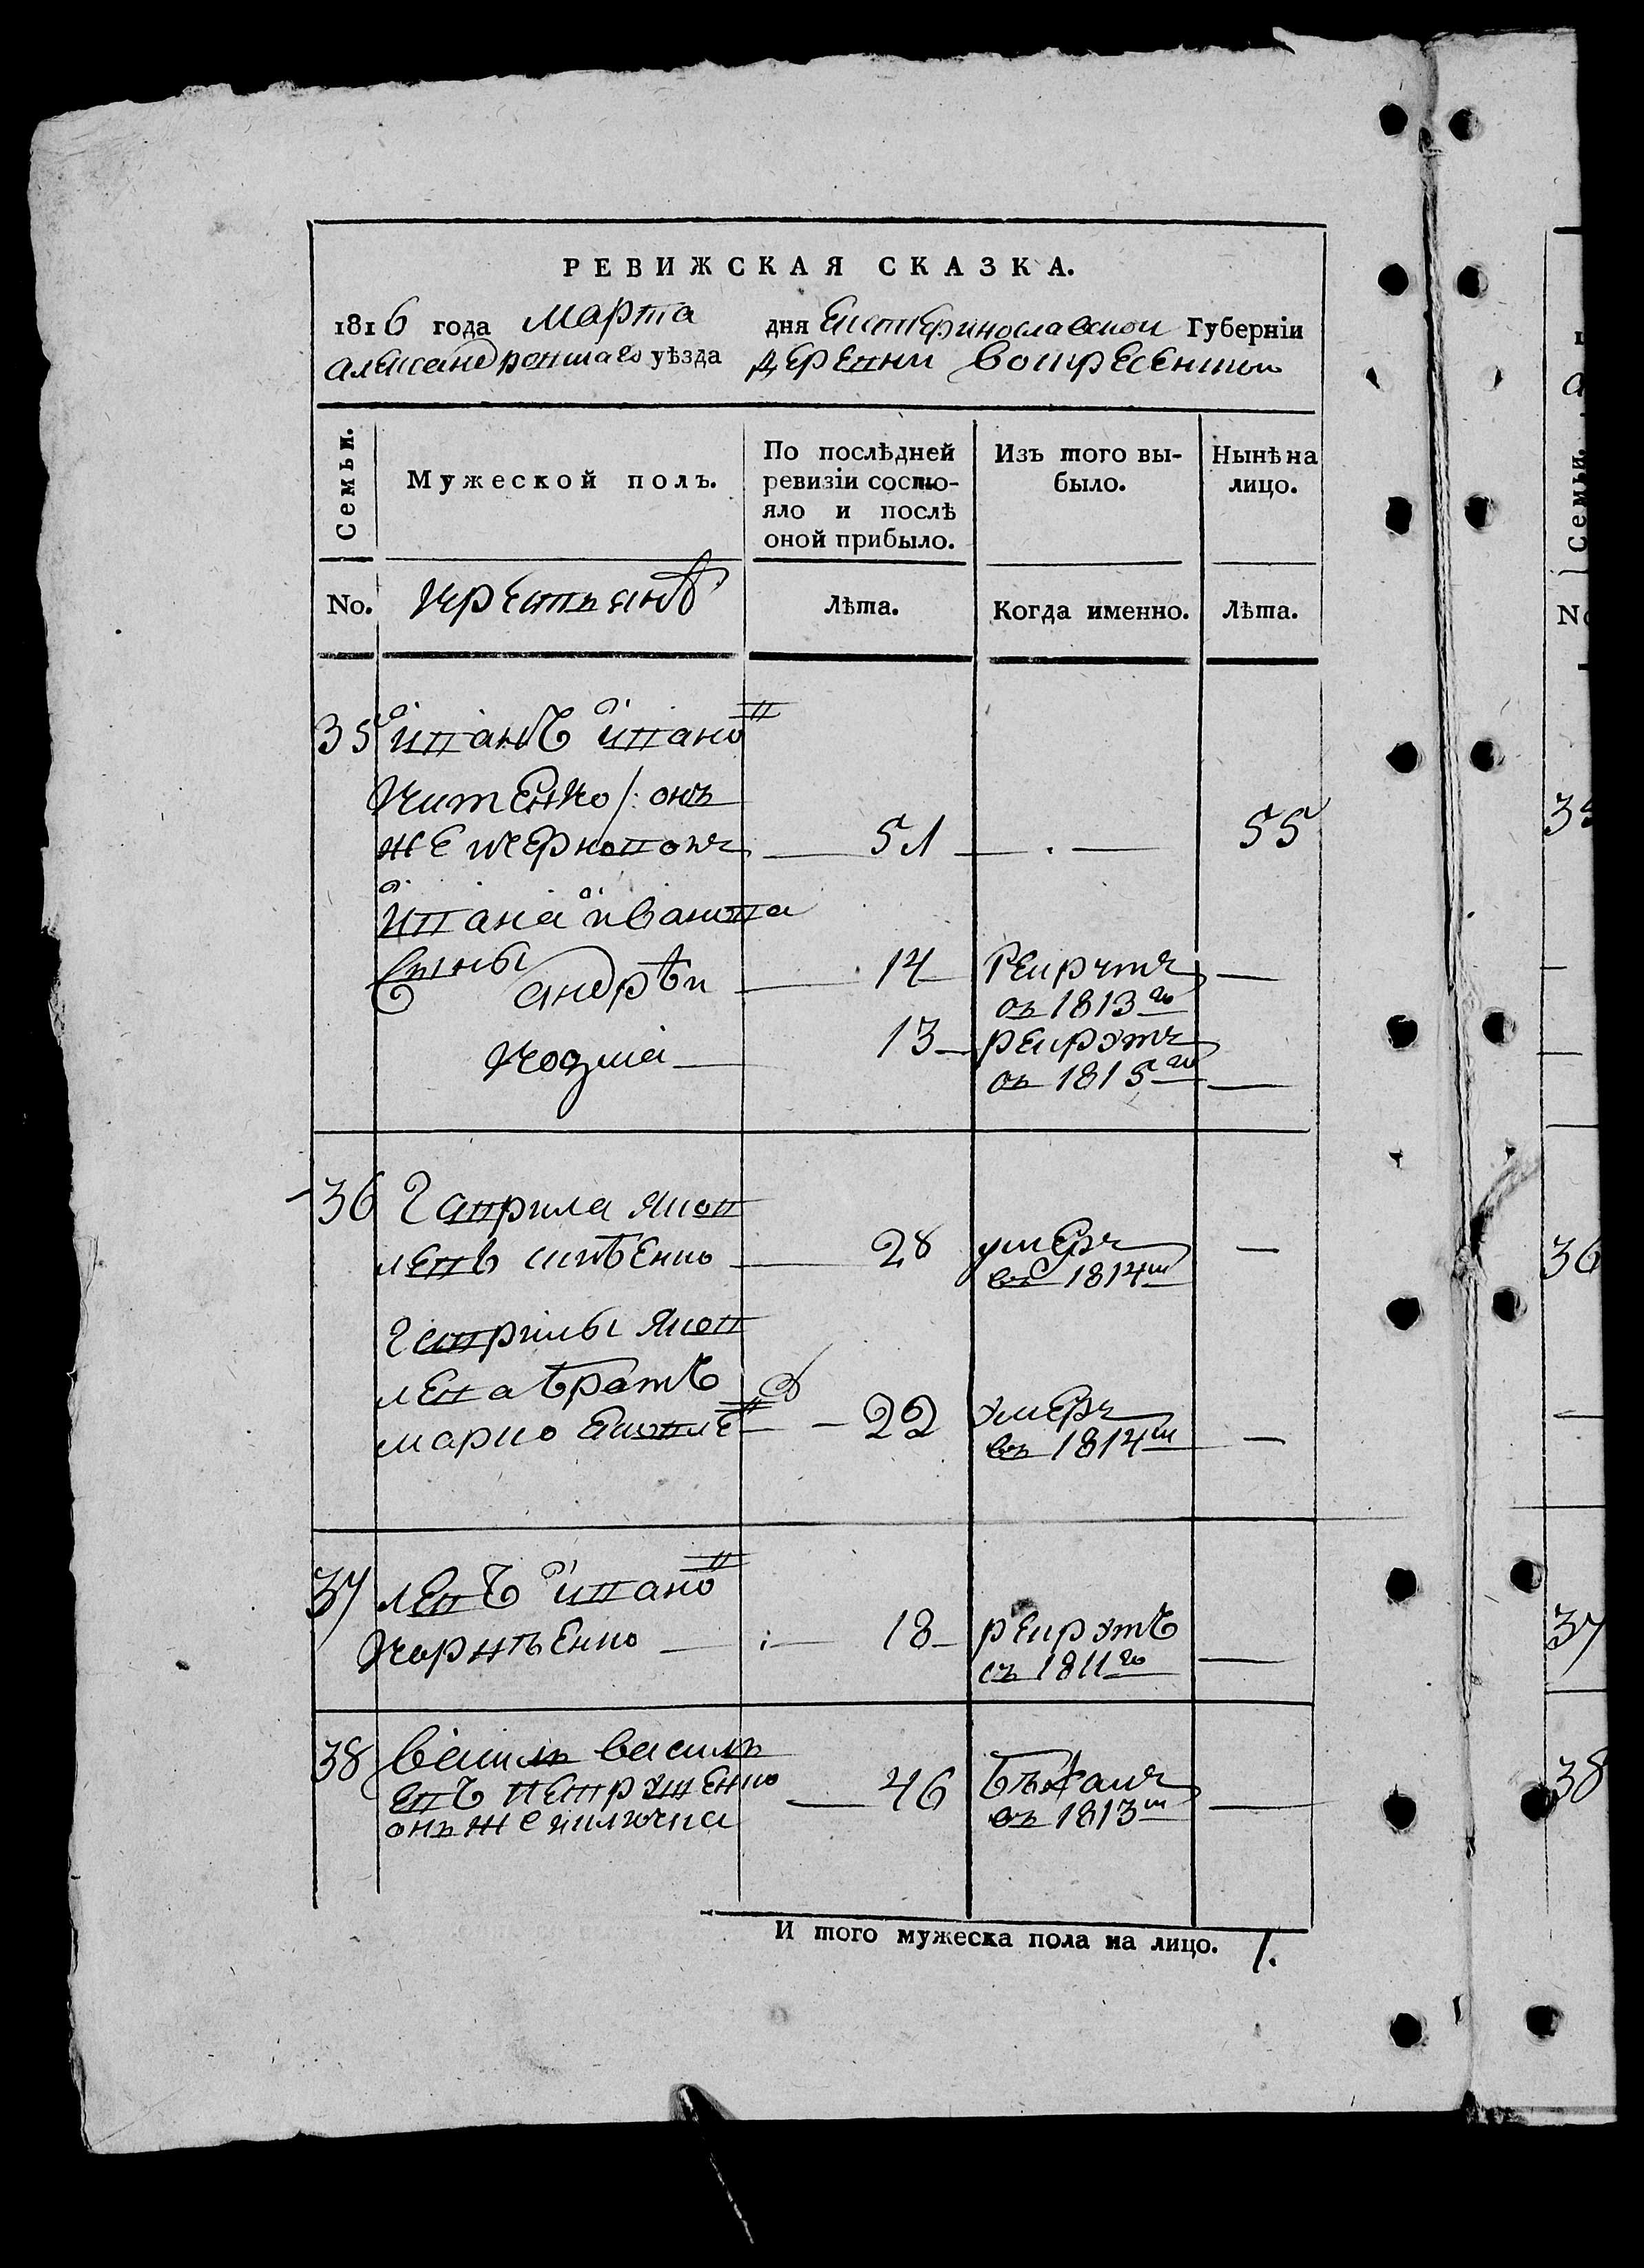 РЕВИЖСКАЯ СКАЗКА.
1816 года Марта дня Екатеринославской Губерніи
Александровскаго уѣзда деревни Воскресенской
Семьи.
Мужеской полъ.
По послѣдней ревизіи состо-
яло и послѣ
оной прибыло.
Изъ того вы-
было.
Нынѣ на
лицо.
No.
крестьянѣ
Лѣта.
Когда именно.
Лѣта.
35 Иванъ Ивановъ
Китенко /: онъ
же 51 — . — 55
Ивана Иванова
Сыны Андрѣй 14 рекрутъ —
съ 1813го
Козма — 13 рекрутъ
съ 1815го —
36 Гаврила Яков
левъ — 28 умеръ —
въ 1814м
Гаврилы Яков
лева братъ
Марко Яковле — 22 умеръ
въ 1814м —
37 Левъ Ивановъ
Корнѣенко — 18 рекрутъ
съ 1811го —
38 Василь Василь
евъ Петрушенко — 46 бѣжалъ
онъ же въ 1813м —
И того мужеска пола на лицо. 1.
35
36
37
38